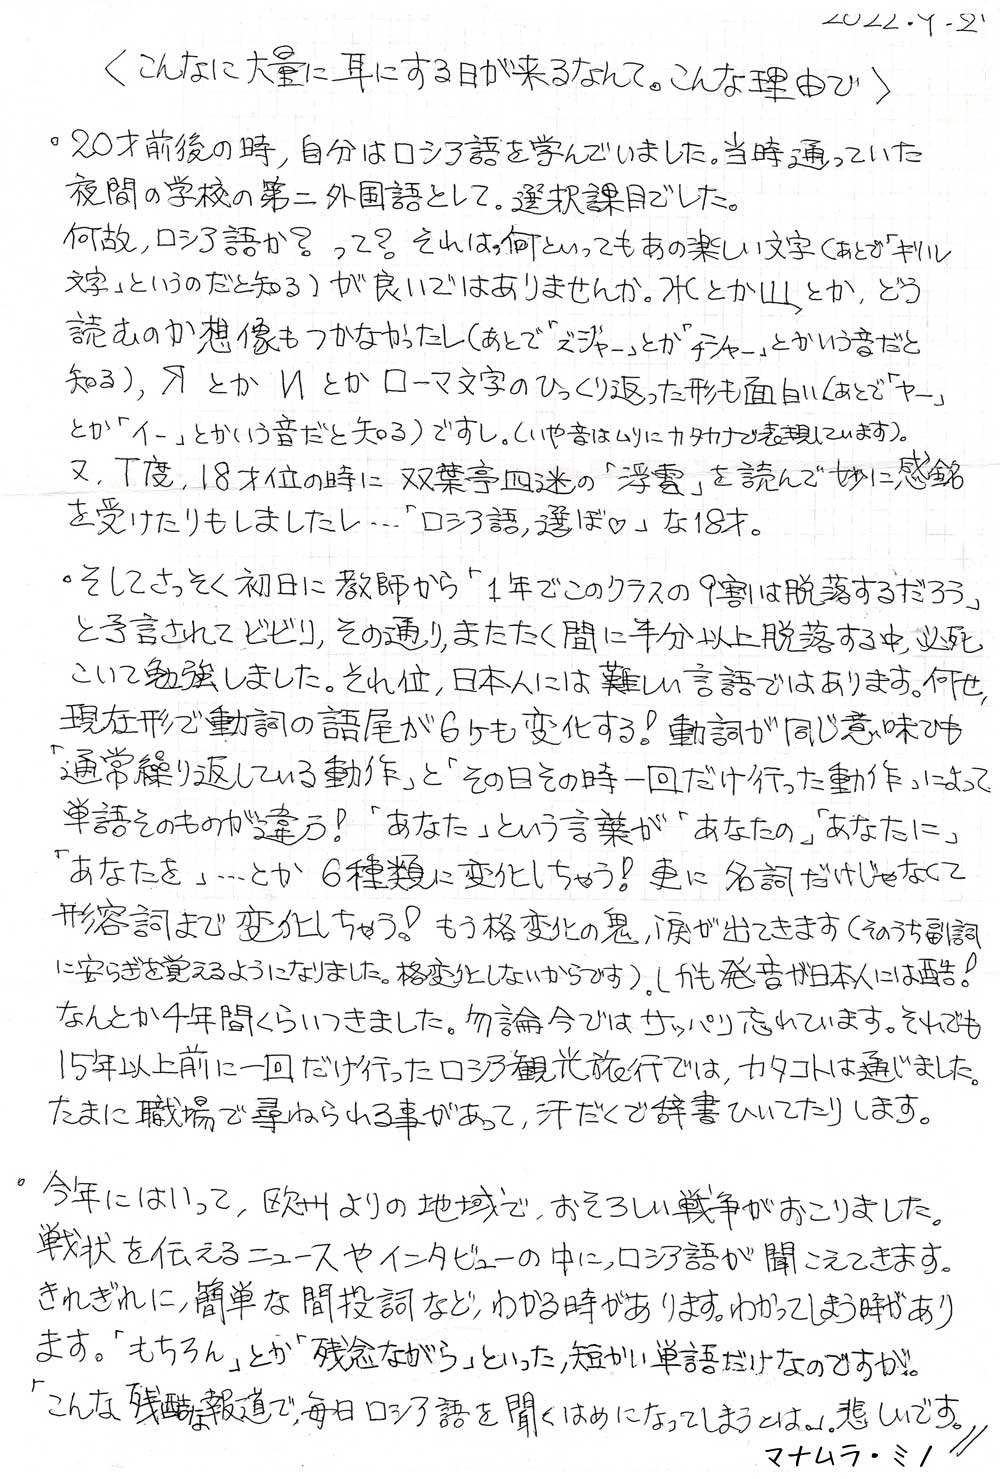 2022.4.21
〈こんなに大量に耳にする日が来るなんて。こんな理由で〉
。20才前後の時,自分はロシア語を学んでいました。当時通っていた
夜間の学校の第二外国語として。選択課目でした。
何故,ロシア語か?って?それは,何といってもあの楽しい文字(あとで「キリル
文字」というのだと知る)が良いではありませんか。Жとか山とか,どう
読むのか想像もつかなかったし(あとで「ズジャー」とか「チシャー」とかいう音だと
知る),ЯとかИとかローマ文字のひっくり返った形も面白い(あとで「ヤー」
とか「イー」とかいう音だと知る)ですし。(いや音はムリにカタカナで表現しています)。
又,丁度,18才位の時に双葉亭四迷の「浮雲」を読んで妙に感銘
を受けたりもしましたし…「ロシア語,選ぼ♡」な18才。
。そしてさっそく初日に教師から「1年でこのクラスの9割は脱落するだろう」
と予言されてビビり,その通り,またたく間に半分以上脱落する中,必死
こいて勉強しました。それ位,日本人には難しい言語ではあります。何せ,
現在形で動詞の語尾が6ケも変化する!動詞が同じ意味でも
「通常繰り返している動作」と「その日その時一回だけ行った動作」によって
単語そのものが違う!「あなた」という言葉が「あなたの」「あなたに」
「あなたを」…とか6種類に変化しちゃう!更に名詞だけじゃなくて
形容詞まで変化しちゃう!もう格変化の鬼,涙が出てきます(そのうち副詞
に安らぎを覚えるようになりました。格変化しないからです)。しかも発音が日本人には酷!
なんとか4年間くらいつきました。勿論今ではサッパリ忘れています。それでも
15年以上前に一回だけ行ったロシア観光旅行では,カタコトは通じました。
たまに職場で尋ねられる事があって,汗だくで辞書ひいてたりします。
。今年にはいって,欧州よりの地域で,おそろしい戦争がおこりました。
戦状を伝えるニュースやインタビューの中に,ロシア語が聞こえてきます。
きれぎれに,簡単な間投詞など,わかる時があります。わかってしまう時があり
ます。「もちろん」とか「残念ながら」といった,短かい単語だけなのですが。
「こんな残酷な報道で,毎日ロシア語を聞くはめになってしまうとは。」悲しいです。
マナムラ・ミノ